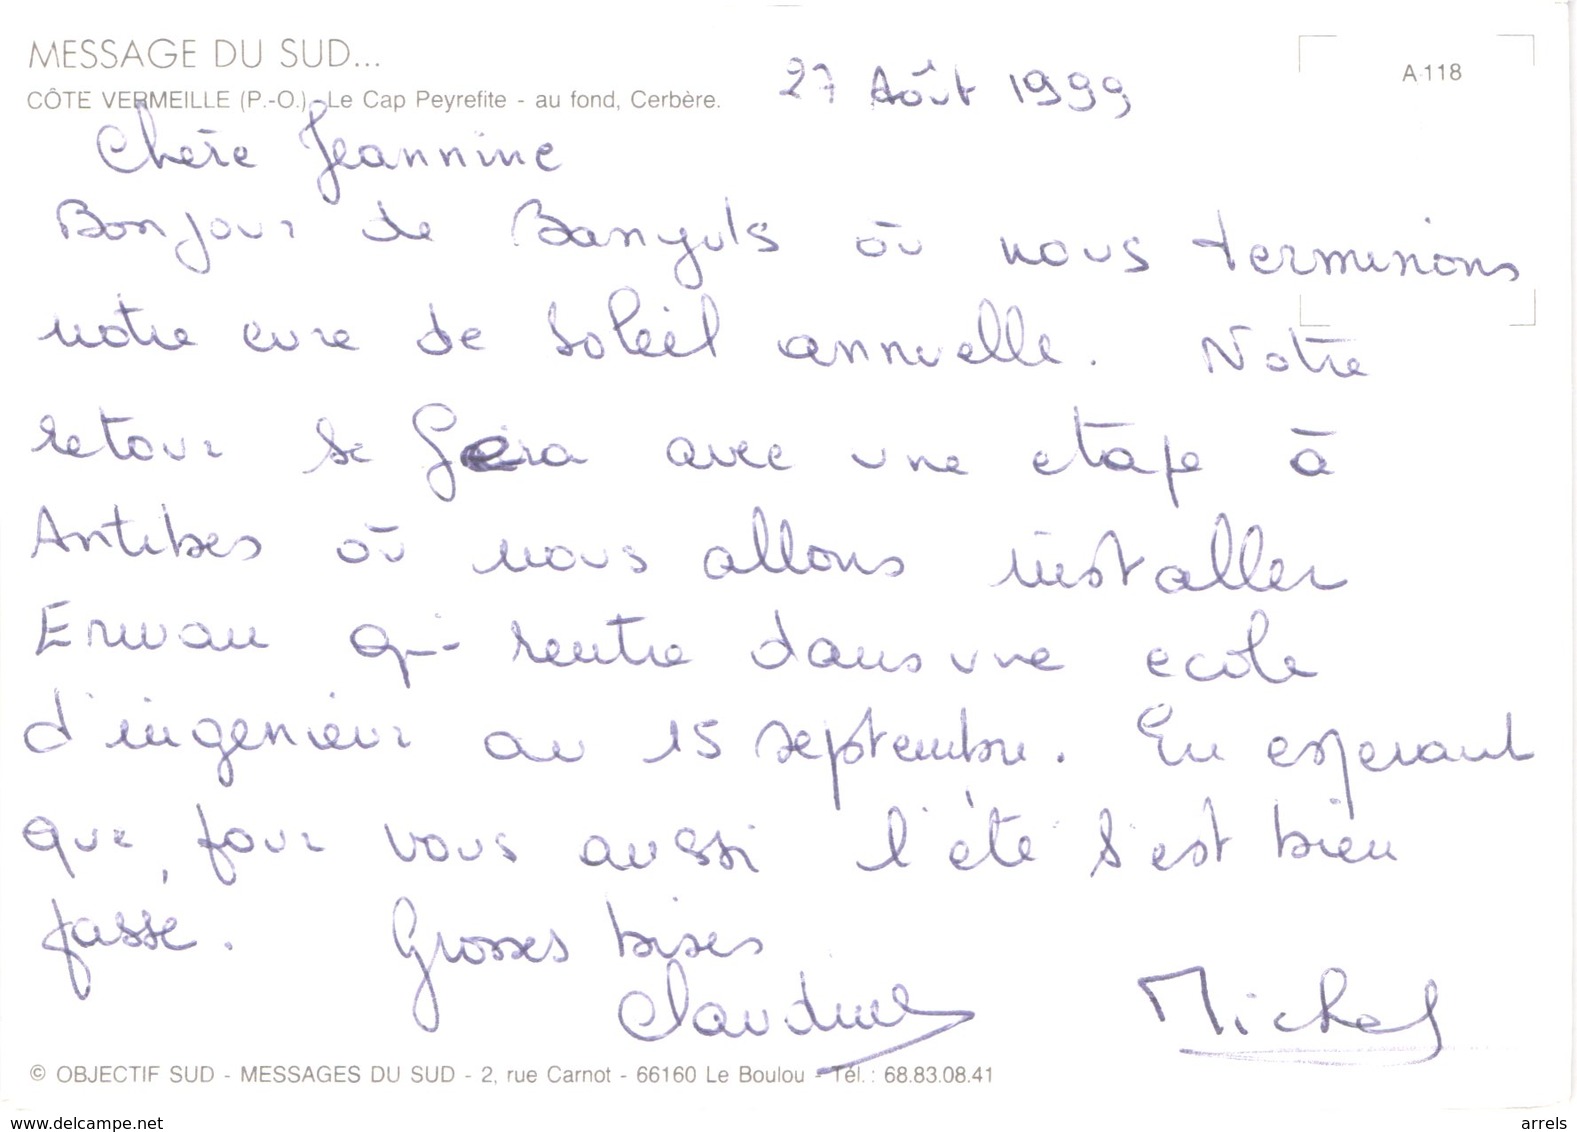 MESSAGE DU SUD...
CÔTE VERMEILLE (P.-O.) - Le Cap Peyrefite - au fond, Cerbère.
27 Août 1999
A-118
Chère Jeannine
Bonjour de Banyuls où nous terminons
notre cure de soleil annuelle. Notre
retour se fera avec une etape à
Antibes où nous allons installer
Erwan qui rentre dans une ecole
d'ingenieur au 15 septembre. En esperant
que, pour vous aussi l'été s'est bien
passé. Grosses bises
Claudine Michel
© OBJECTIF SUD - MESSAGES DU SUD - 2, rue Carnot - 66160 Le Boulou - Tél. : 68.83.08.41
www.delcampe.net
arrels